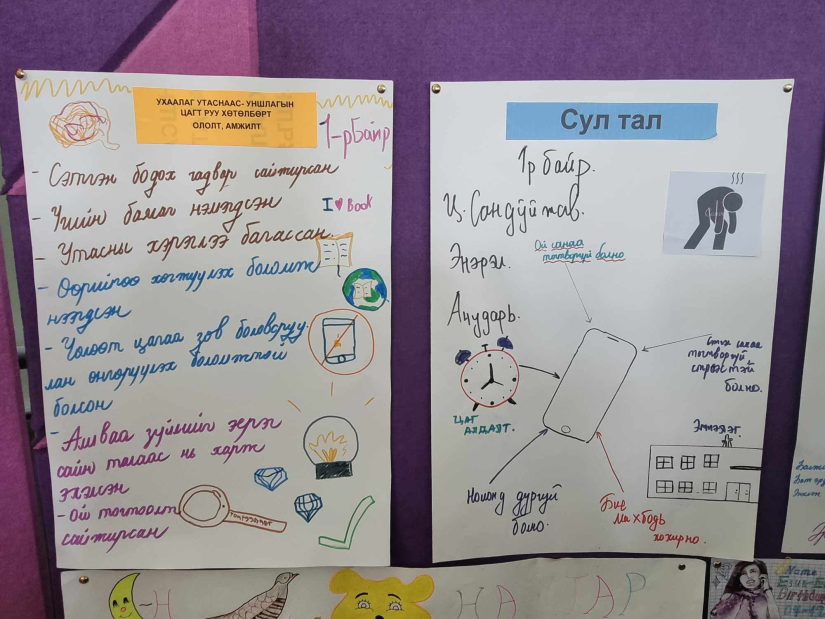 УХААЛАГ УТАСНААС- УНШЛАГЫН
ЦАГТ РУУ ХӨТӨЛБӨРТ
ОЛОЛТ, АМЖИЛТ
1-р байр
- Сэтгэн бодох чадвар сайжирсан
- Үгийн баялаг нэмэгдсэн
I ♥ Book
- Утасны хэрэглээ багассан
- Өөрийгөө хөгжүүлэх боломж
нээгдсэн
- Чөлөөт цагаа зөв боловсруу-
лан өнгөрүүлэх боломжтой
болсон
- Аливаа зүйлийг эерэг
сайн талаас нь харж
эхэлсэн
- Ой тогтоолт
сайжирсан
Сул тал
1р байр.
Ц. Сандуйжав.
Энэрэл.
Анударь.
Ой санаа
тогтворгүй болно
ЦАГ
АЛДАЛТ.
тогтворгүй
стресстэй
болно.
Эмнэлэг
Номонд дургүй
болно.
Бие
махбодь
хохирно.
Н
Н А
Т А Р
Name